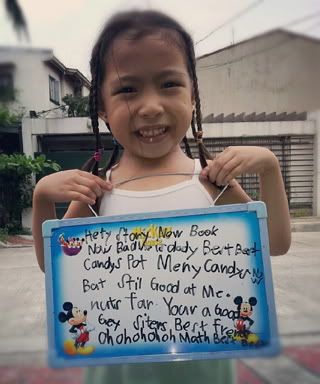 Hety Story Now Book
Now Bad is dady Best Best
Candys Pot Meny Candys N
Bat Still Good at Me.
nuts far Your a Good
Gey Siters Best Frend
Oh oh oh oh oh Math Best